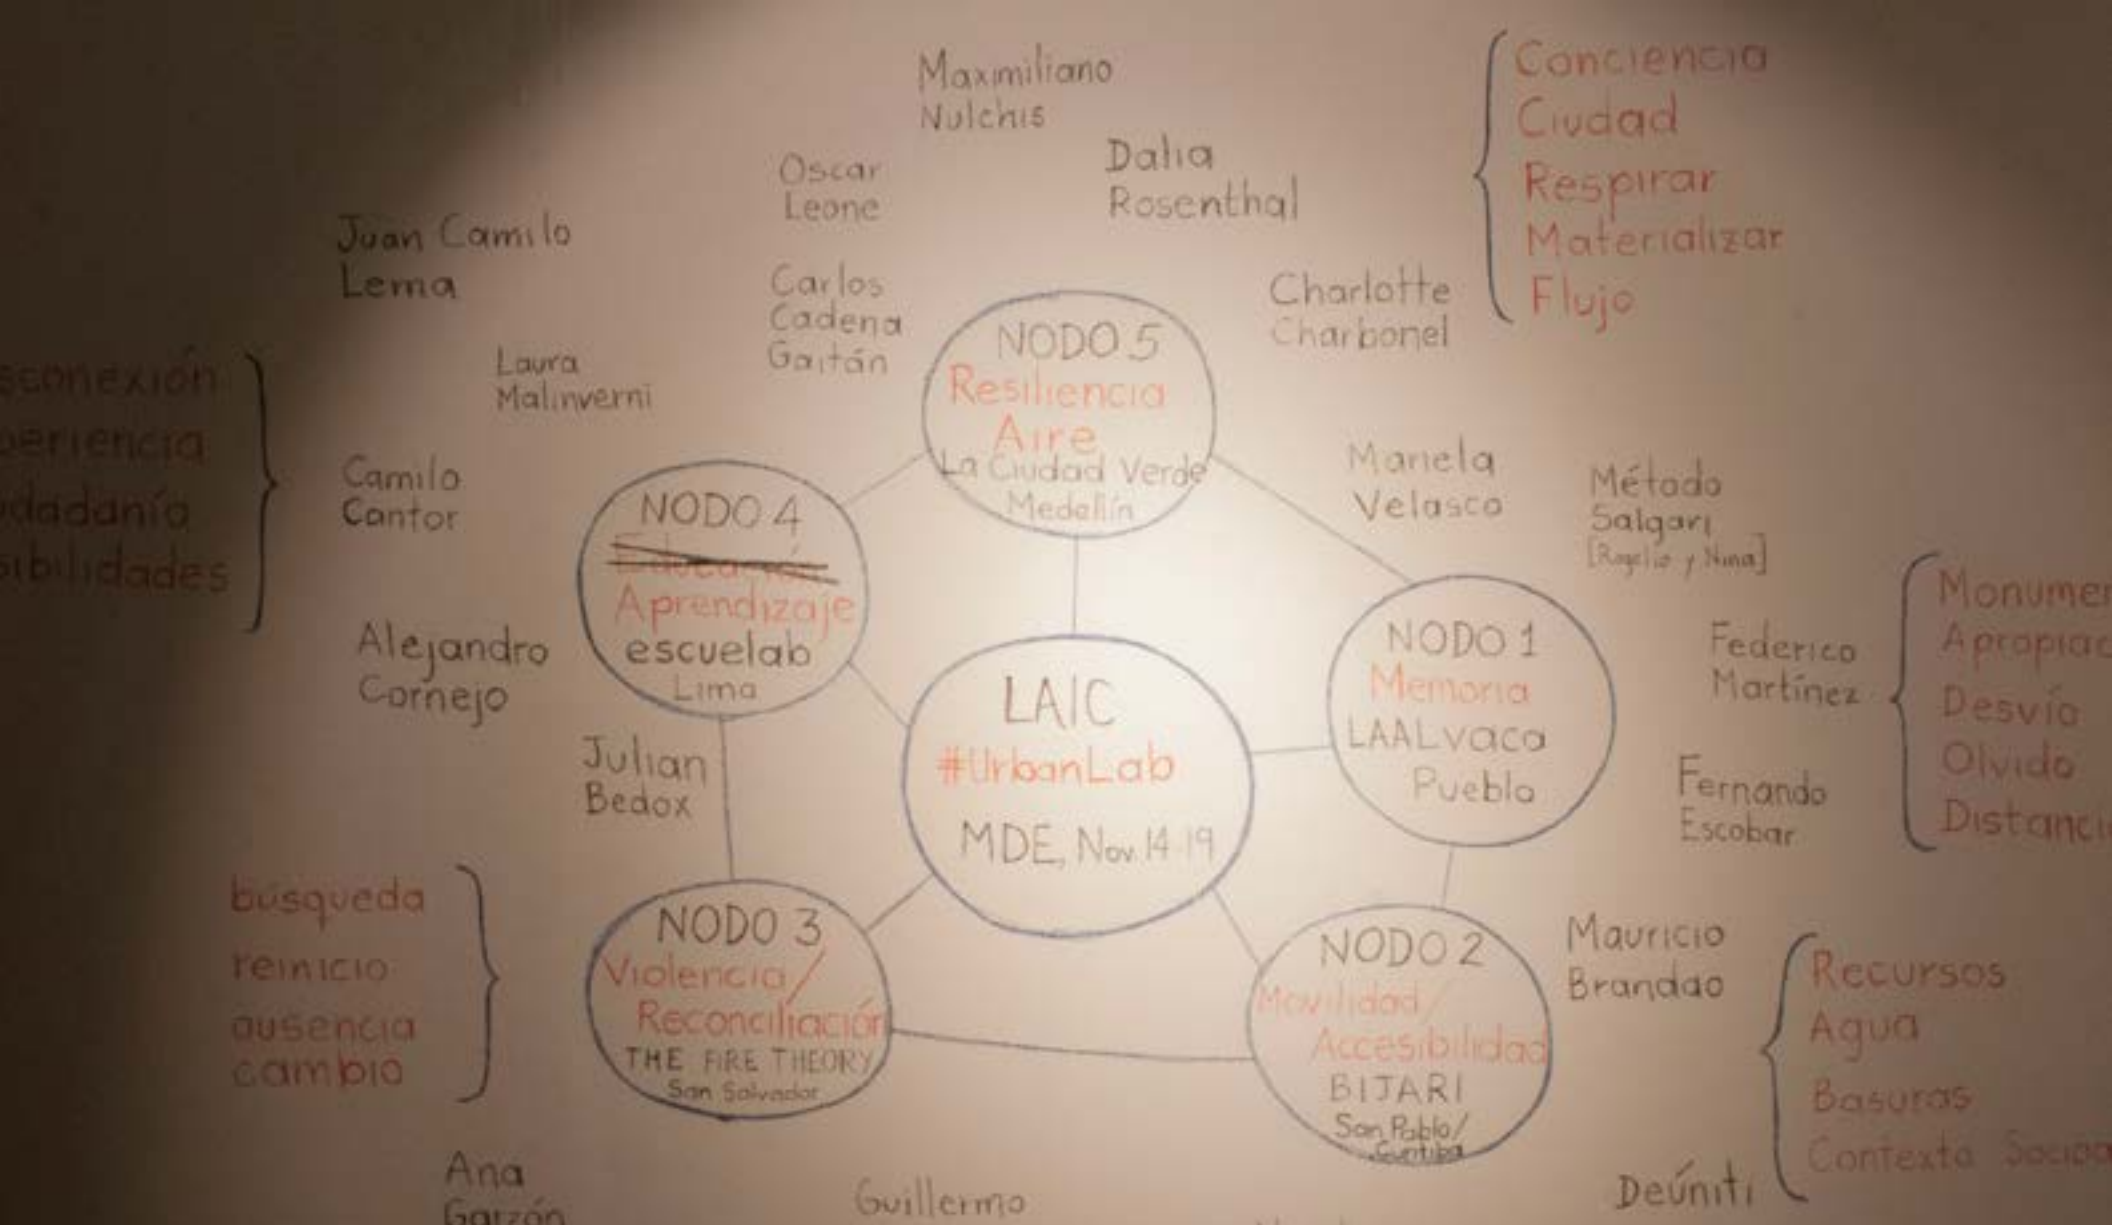 Maximiliano
Nulchis
Oscar
Leone
Dalia
Rosenthal
Conciencia
Ciudad
Respirar
Materializar
Flujo
Juan Camilo
Lema
Carlos
Cadena
Gaitán
Charlotte
Charbonel
Laura
Malinverni
NODO 5
Resiliencia
Aire
La Ciudad Verde
Medellín
sconexión
periencia
dadanía
sibilidades
Camilo
Cantor
NODO 4
Educación
Aprendizaje
escuelab
Lima
Mariela
Velasco
Método
Salgari
[Rogelio y Nina]
Alejandro
Cornejo
Julian
Bedox
LAIC
#UrbanLab
MDE, Nov. 14-19
NODO 1
Memoria
LAALvaca
Puebla
Federico
Martínez
Fernando
Escobar
Monumen
Apropiac
Desvío
Olvido
Distanci
búsqueda
reinicio
ausencia
cambio
NODO 3
Violencia/
Reconciliación
THE FIRE THEORY
San Salvador
NODO 2
Movilidad/
Accesibilidad
BIJARI
San Pablo/
Curitiba
Mauricio
Brandao
Recursos
Agua
Basuras
Contexto
Ana
Garzón
Guillermo
Deúniti